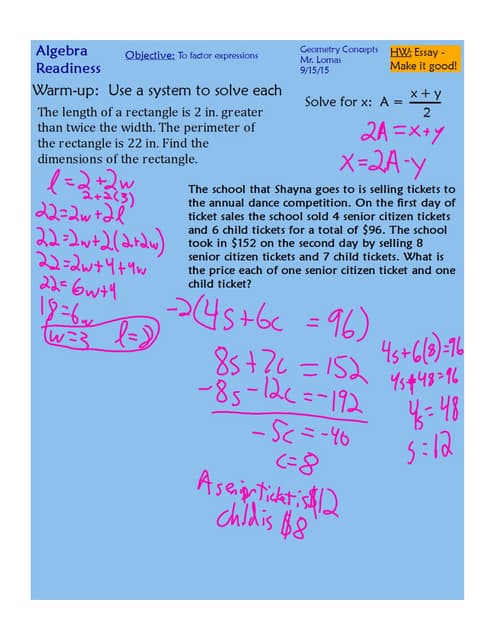 Algebra
Readiness
Objective: To factor expressions
Geometry Concepts
Mr. Lomas
9/15/15
HW: Essay -
Make it good!
Warm-up: Use a system to solve each
The length of a rectangle is 2 in. greater
than twice the width. The perimeter of
the rectangle is 22 in. Find the
dimensions of the rectangle.
l = 2 + 2w
2 + 2(3)
22 = 2w + 2l
22 = 2w + 2(2 + 2w)
22 = 2w + 4 + 4w
22 = 6w + 4
18 = 6w
w = 3 l = 8
Solve for x: A = x + y / 2
2A = x + y
x = 2A - y
The school that Shayna goes to is selling tickets to
the annual dance competition. On the first day of
ticket sales the school sold 4 senior citizen tickets
and 6 child tickets for a total of $96. The school
took in $152 on the second day by selling 8
senior citizen tickets and 7 child tickets. What is
the price each of one senior citizen ticket and one
child ticket?
-2(4s + 6c = 96)
8s + 7c = 152
-8s - 12c = -192
-5c = -40
c = 8
4s + 6(8) = 96
4s + 48 = 96
4s = 48
s = 12
A senior ticket is $12
child is $8